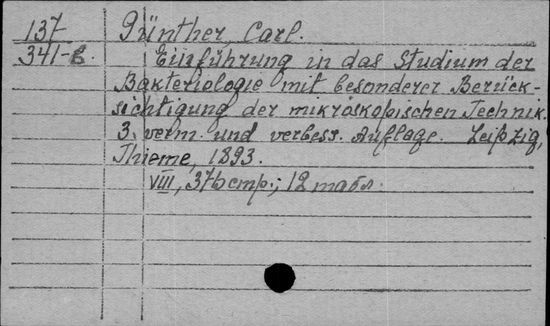 137
341-B
Günther Carl.
Einführung in das Studium der
Bakteriologie mit besonderer Berück-
sichtigung der mikroskopischen Technik.
3. verm. und verbess. Auflage. Leipzig,
Thieme, 1893.
VIII, 376 стр.; 12 табл.